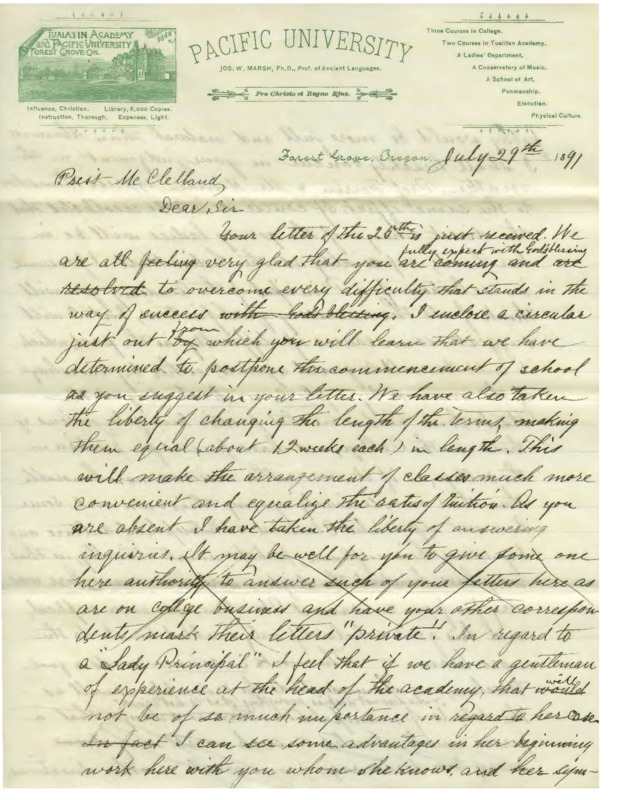 TUALATIN ACADEMY
and PACIFIC UNIVERSITY
FOREST GROVE-OR.
Influence, Christian. Library, 6,000 Copies.
Instruction, Thorough. Expenses, Light.
PACIFIC UNIVERSITY
JOS. W. MARSH, Ph.D., Prof. of Ancient Languages.
Pro Christo et Regno Ejus.
Three Courses in College.
Two Courses in Tualitan Academy.
A Ladies' Department.
A Conservatory of Music.
A School of Art.
Penmanship.
Elocution.
Physical Culture.
Forest Grove, Oregon, July 29th 1891
Pres't McClelland,
Dear Sir
Your letter of the 25th is just received. We
fully expect with God's blessing
are all feeling very glad that you are coming and are
resolved to overcome every difficulty that stands in the
way of success with God's blessing. I inclose a circular
from
just out by which you will learn that we have
determined to postpone the commencement of school
as you suggest in your letter. We have also taken
the liberty of changing the length of the terms, making
them equal (about 12 weeks each) in length. This
will make the arrangement of classes much more
convenient and equalize the rates of tuition. As you
are absent I have taken the liberty of answering
inquiries. It may be well for you to give some one
here authority to answer such of your letters here as
are on college business and have your other correspon-
dents, mark their letters "private". In regard to
a "Lady Principal" I feel that if we have a gentleman
will
of experience at the head of the academy, that would
not be of so much importance in regard to her
In fact I can see some advantages in her beginning
work here with you whom she knows, and her sym-